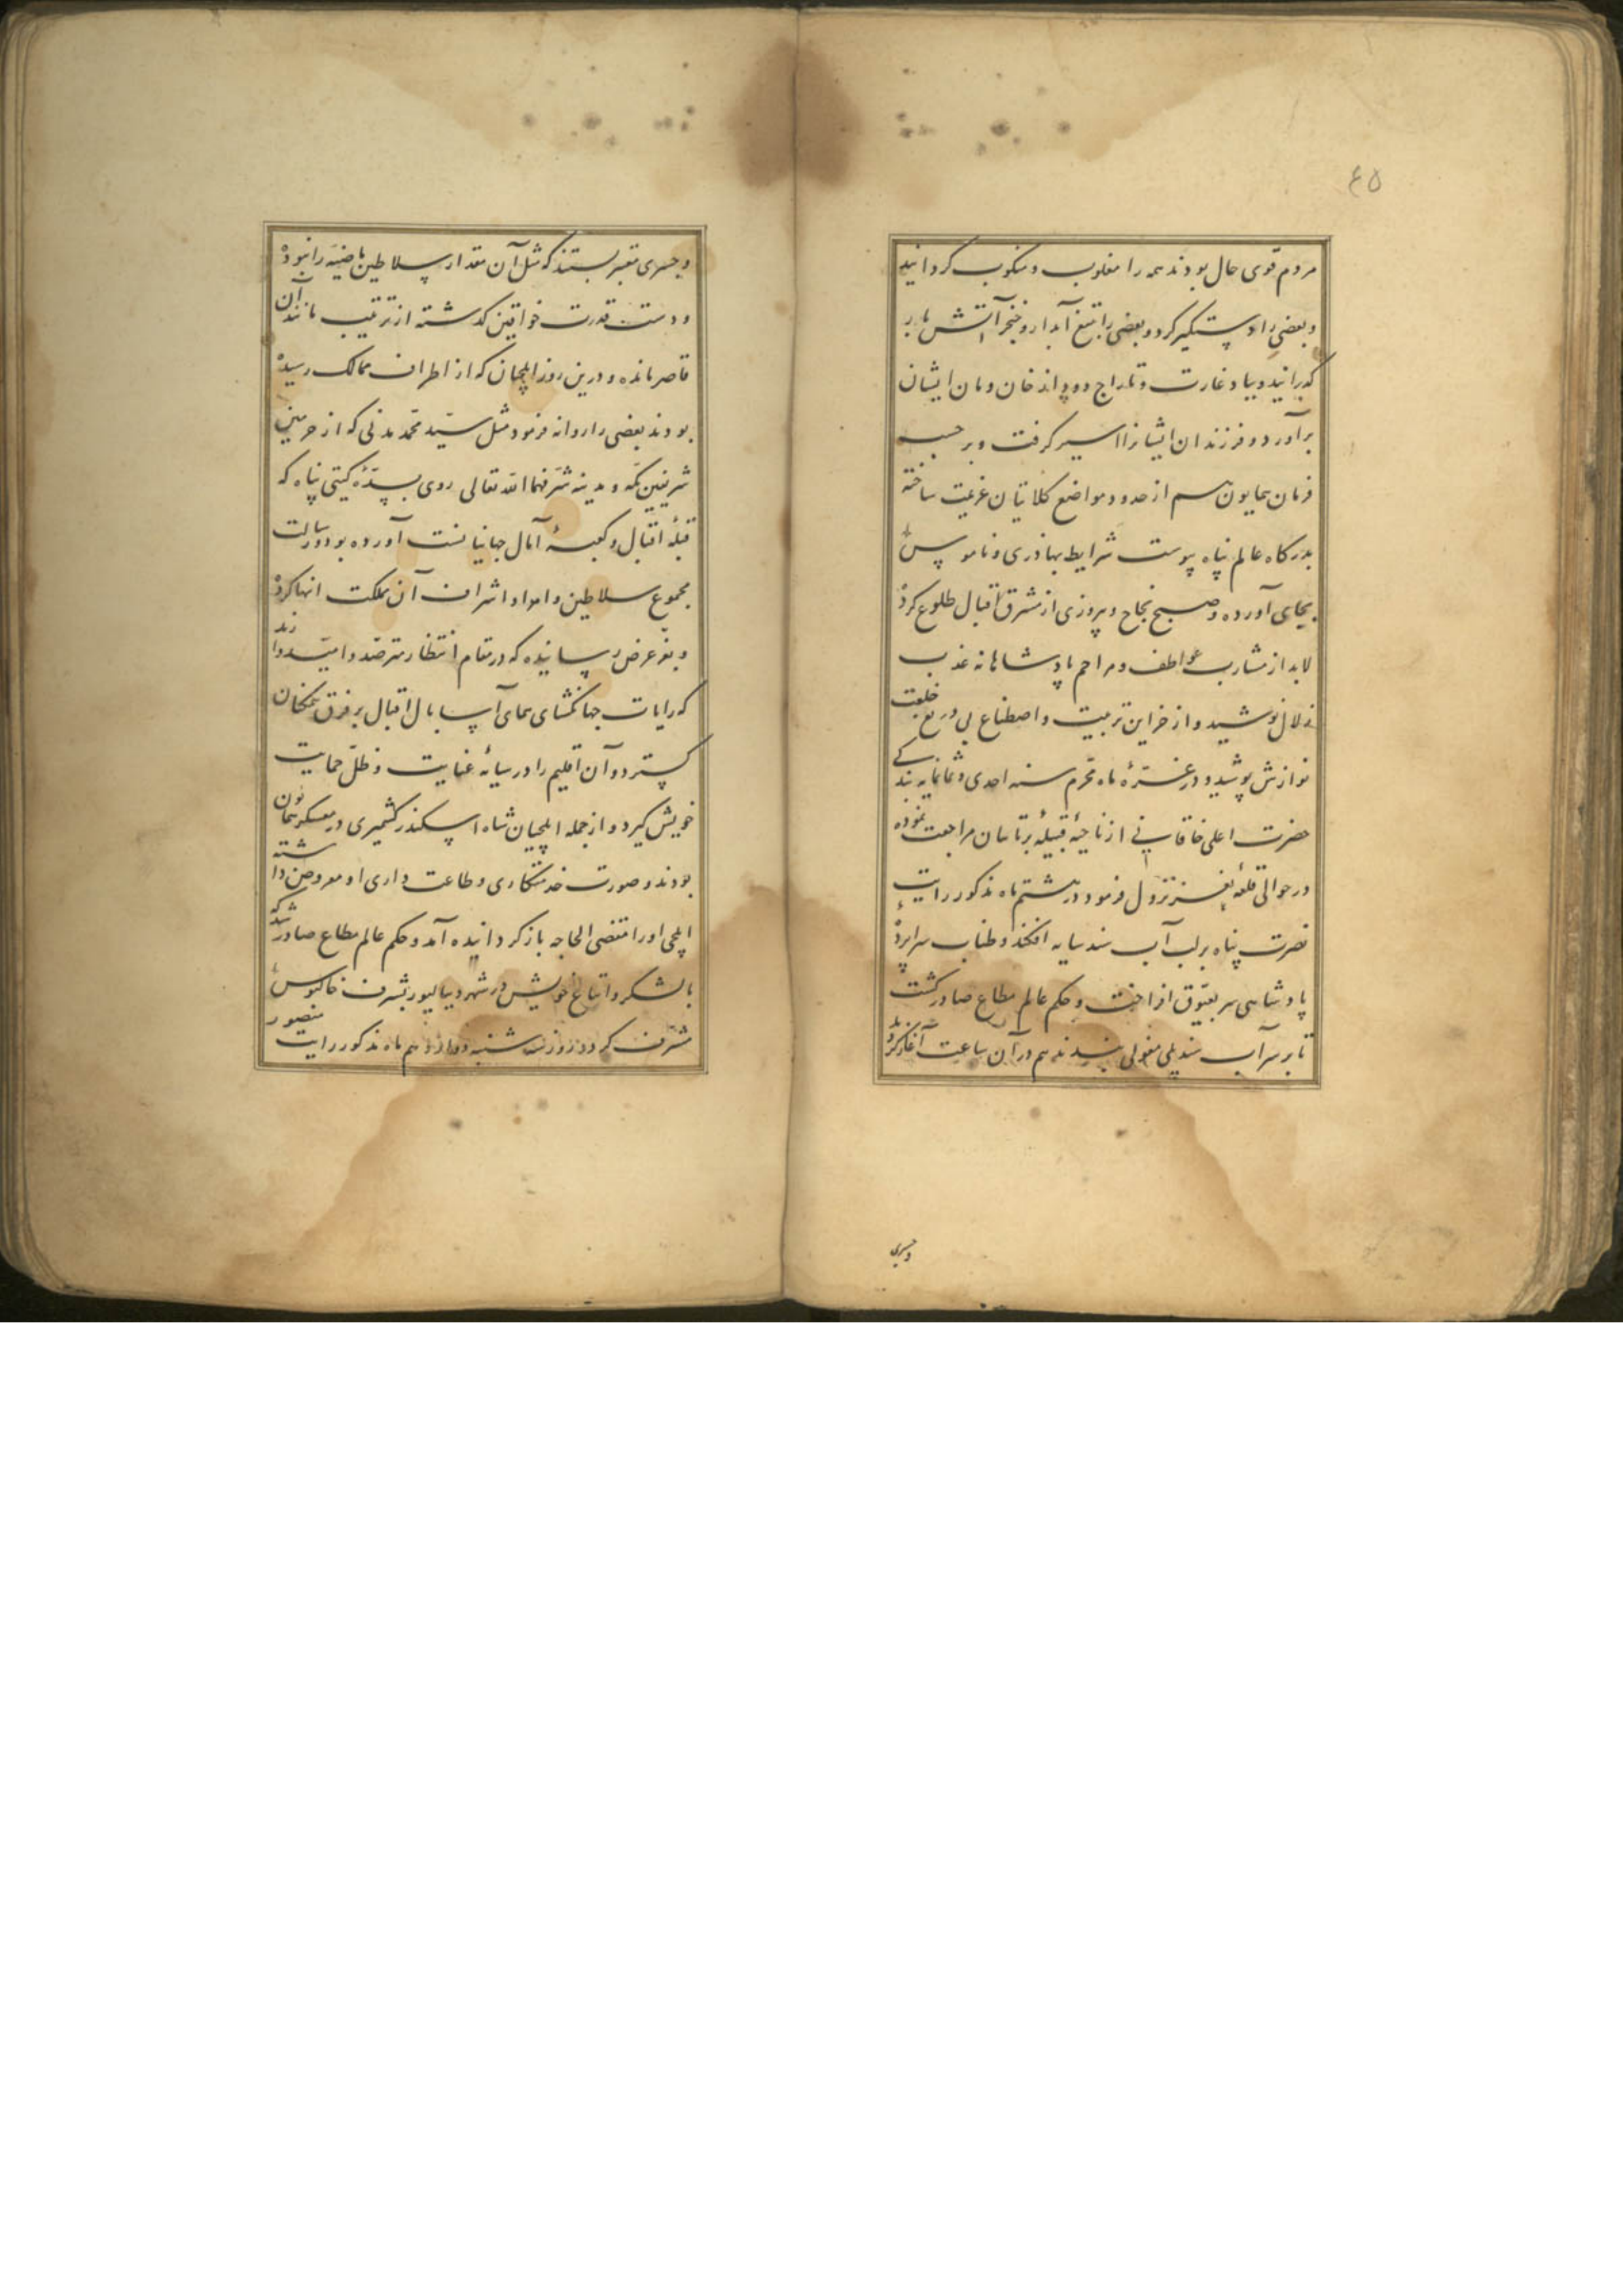 ٤٥
مردم قوی حال بودند همه را مغلوب و منکوب کردانید
و بعضی را دستکیر کرد و بعضی را بتیغ آبدار و خنجر آتش بار
کذرانید و بباد غارت و تاراج دود از خان و مان ایشان
برآورد و فرزندان ایشانرا اسیر کرفت و بر حسب
فرمان همایون هم از حدود و مواضع کلاتیان عزیمت ساخته
بدرکاه عالم پناه پیوست شرایط بهادری و ناموس
بجای آورده و صبح نجاح و پیروزی از مشرق اقبال طلوع کرد
لابد از مشارب عواطف و مراحم پادشاهانه عذب
زلال نوشید و از خزاین تربیت و اصطناع بی دریغ خلعت
نوازش پوشید و در غرّهٔ ماه محرم سنه احدی و ثمانمایه بندکی
حضرت اعلی خاقانی از ناحیهٔ قبیلهٔ برتاسان مراجعت نموده
در حوالی قلعهٔ نغز نزول فرمود و در هشتم ماه مذکور رایت
نصرت پناه بر لب آب سند سایه افکند و طناب سرابرده
پادشاهی سر بعیّوق افراخت و حکم عالم مطاع صادر کشت
تا بر سر آب سند پلی مغولی بندند هم در آن ساعت آغاز کردند
و جسری
و جسری معتبر بستند که مثل آن مقدار سلاطین ماضیه را نبوده
و دست قدرت خواقین کذشته از ترتیب مانند آن
قاصر مانده و درین روز ایلچیان که از اطراف ممالک رسیده
بودند بعضی را روانه فرمود مثل سیّد محمّد مدنی که از حرمین
شریفین مکّه و مدینه شرّفهما الله تعالی روی بسدّهٔ کیتی پناه که
قبلهٔ اقبال و کعبهٔ آمال جهانیانست آورده بود و رسالت
مجموع سلاطین و امرا و اشراف آن مملکت انها کرده
و بعزّ عرض رسانیده که در مقام انتظار مترصّد و امیّدوارند
که رایات جهانکشای همای آسا بال اقبال بر فرق همکنان
کسترد و آن اقلیم را در سایهٔ عنایت و ظلّ حمایت
خویش کیرد و از جمله ایلچیان شاه اسکندر کشمیری در معسکر همایون
بودند و صورت خدمتکاری و طاعت داری او معروض داشته
ایلچی او را مقتضی الحاجه باز کردانیده آمد و حکم عالم مطاع صادر شد که
با لشکر و اتباع خویش در شهر دیبالپور بشرف خاکبوس
مشرّف کردد و روز سه شنبه دوازدهم ماه مذکور رایت منصور